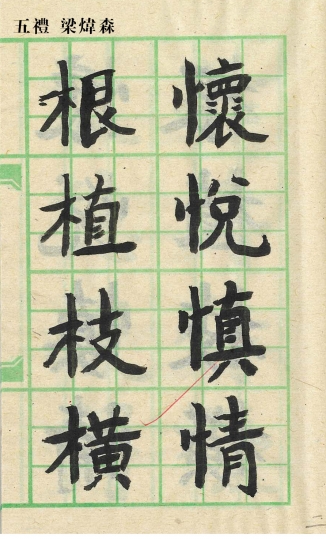 五禮 梁煒森
懷悅慎情
根植枝橫